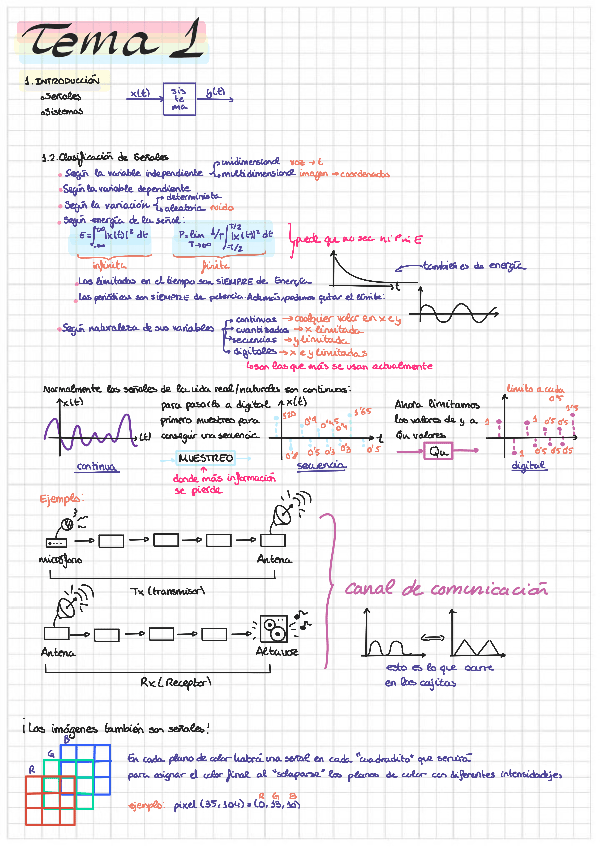 Tema 1
1. INTRODUCCIÓN
Señales
Sistemas
x(t) sis te ma y(t)
1.2. Clasificación de Señales
Según la variable independiente unidimensional voz → t
multidimensional imagen → coordenadas
Según la variable dependiente
Según la variación determinista
aleatoria ruido
Según energía de la señal:
E = ∫ |x(t)|² dt
-∞ ∞
P = lim 1/T ∫ |x(t)|² dt
T→∞ -T/2 T/2
puede que no sea ni P ni E
infinita finita
también es de energía
t
Las limitadas en el tiempo son SIEMPRE de Energía
Las periódicas son SIEMPRE de potencia. Además, podemos quitar el límite:
Según naturaleza de sus variables
continuas → cualquier valor en x e y
cuantizadas → x limitada
secuencias → y limitada
digitales → x e y limitadas
son las que más se usan actualmente
Normalmente las señales de la vida real/naturales son continuas:
x(t)
(t)
continua
para pasarlo a digital
primero muestreo para
conseguir una secuencia
MUESTREO
donde más información
se pierde
x(t)
t
secuencia
Ahora limitamos
los valores de y a
Qu valores
Qu
límite a cada
0'5
digital
Ejemplo:
micrófono Antena
Tx (transmisor)
Antena Altavoz
Rx (Receptor)
canal de comunicación
esto es lo que ocurre
en las cajitas
¡Las imágenes también son señales!
R G B
En cada plano de color habrá una señal en cada "cuadradito" que servirá
para asignar el color final al "solaparse" los planos de color con diferentes intensidades
R G B
ejemplo: pixel (35, 104) = (0, 33, 10)